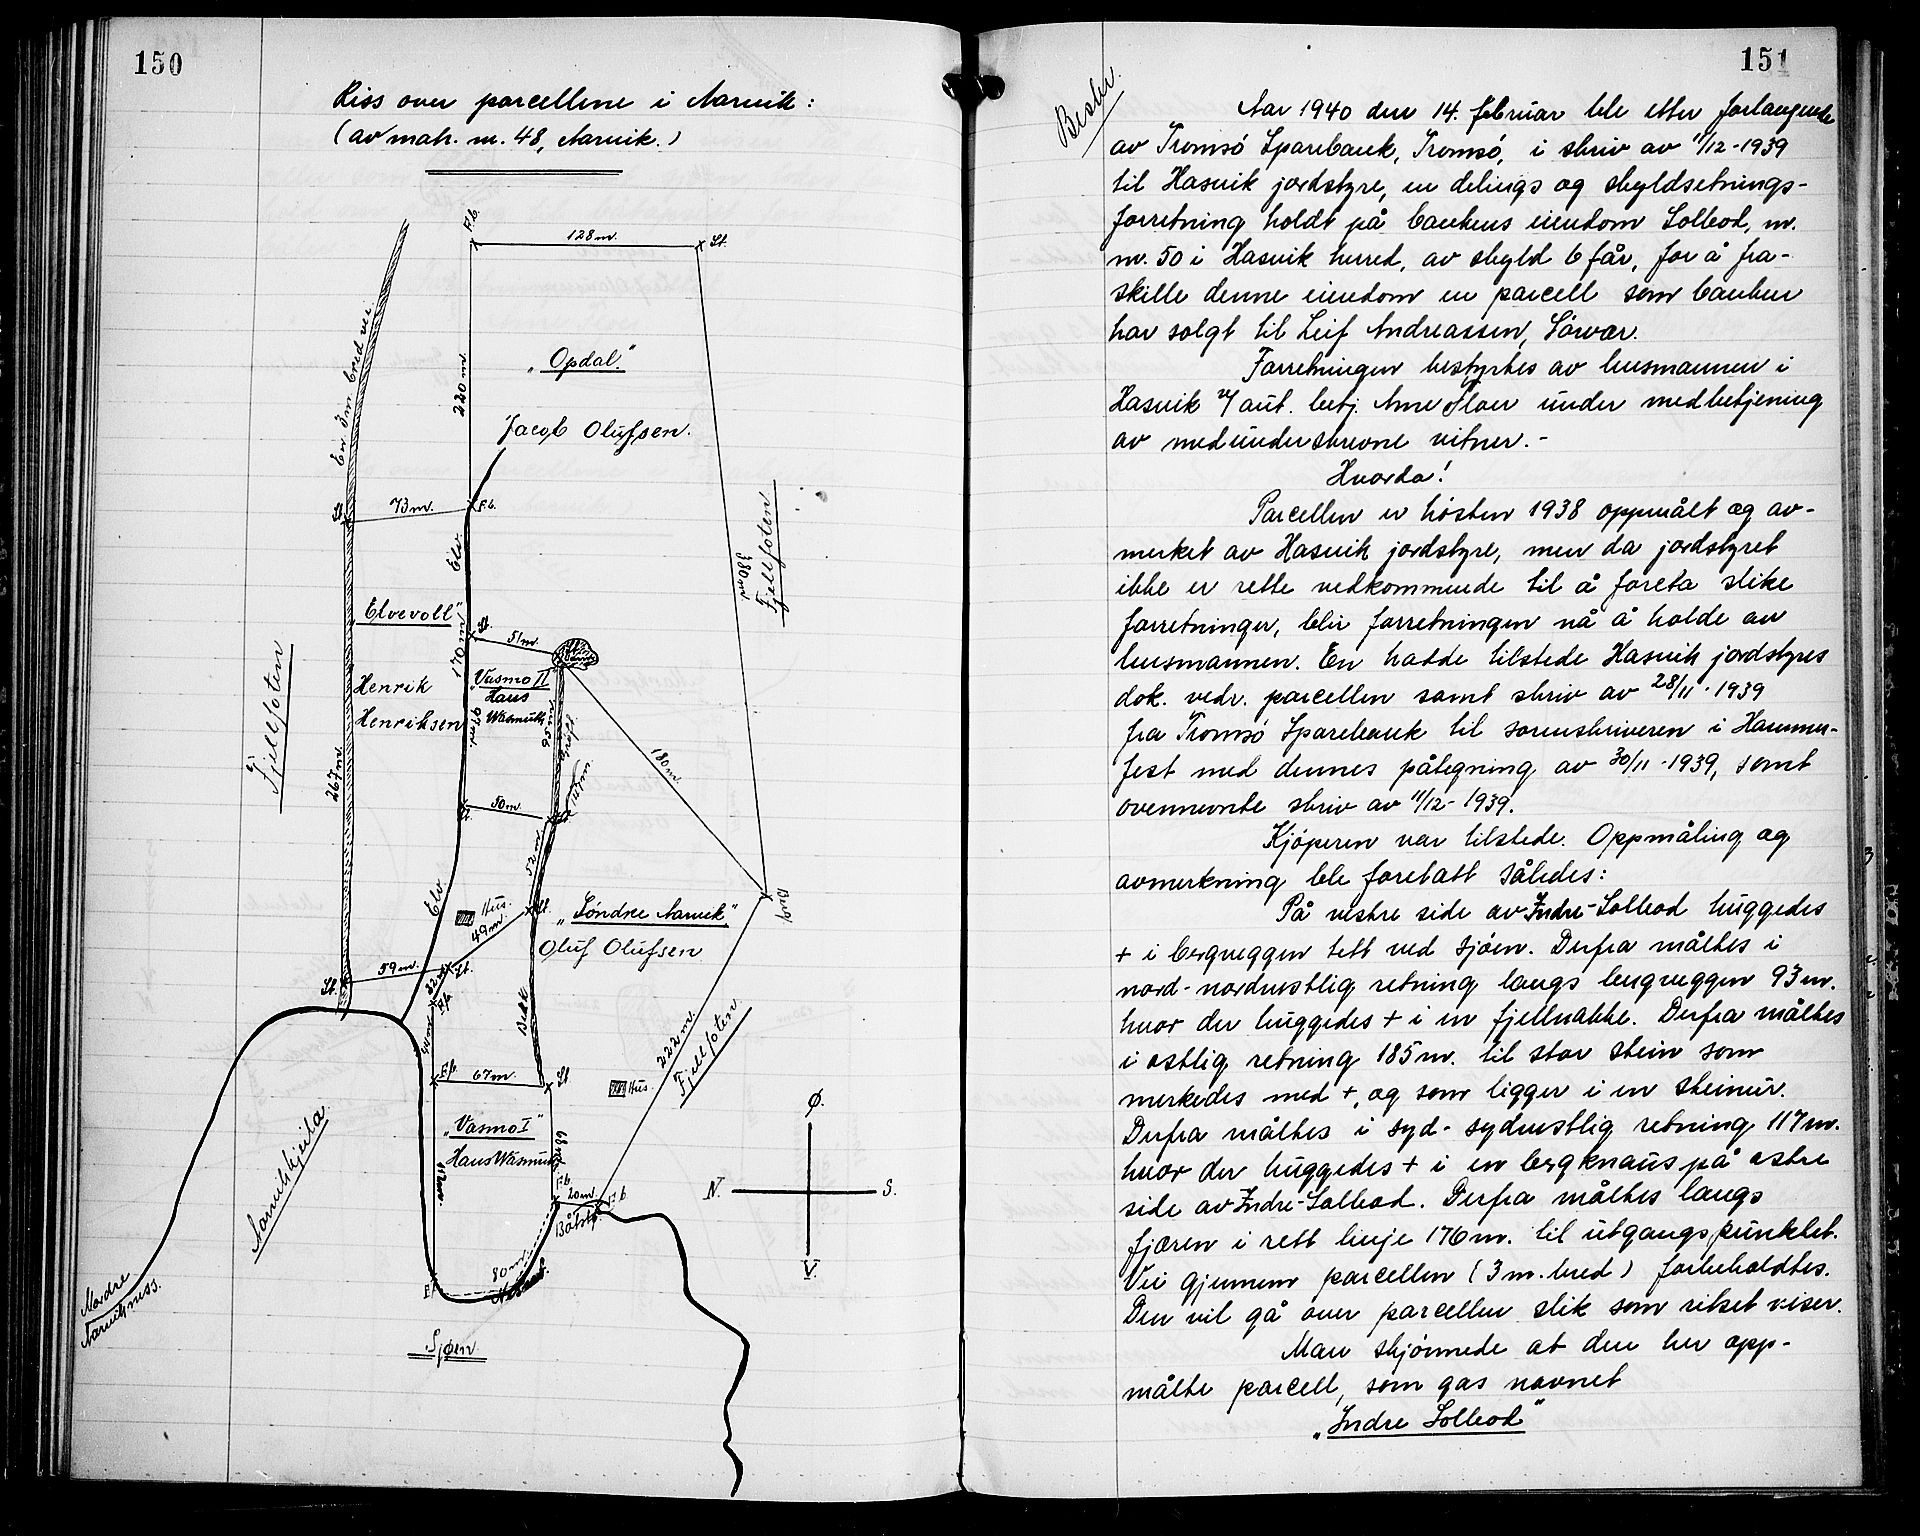 150
Riss over parcellene i Aarvik:
(av matr. nr. 48, Aarvik.)
F.b.
128 m.
St.
En 3 m. bred vei.
220 m.
„Opdal"
Jacob Olufsen.
St.
73 m.
F.b.
Elv
380 m.
Fjellfoten
„Elvevoll"
St.
51 m.
170 m.
Vasmo II
Hans
Wasmuth
Henrik
Henriksen
97 m.
95 m.
Fjellfoten
267 m.
180 m.
50 m.
St.
St.
147 m.
52 m.
Elv
Hus.
St.
49 m.
„Söndre Aarvik"
Oluf Olufsen
Berg
59 m.
St.
St.
32 m.
F.b.
Bekk
40 m.
222 m.
Fjellfoten
F.b.
67 m.
St.
Hus.
„Vasmo I"
Hans Wasmuth
68 m.
112 m.
F.b.
20 m.
F.b.
Båtstø
80 m.
F.
Aarvikkjeila
Nordre
Aarvikness.
Sjøen.
Ø.
N.
S.
V.
151
Beskr.
Aar 1940 den 14. februar ble etter forlangende
av Tromsö Sparebank, Tromsö, i skriv av 11/12-1939
til Hasvik jordstyre, en delings og skyldsetnings-
forretning holdt på bankens eiendom Solbod, nr.
nr. 50 i Hasvik herred, av skyld 6 får, for å fra-
skille denne eiendom en parcell som banken
har solgt til Leif Andreassen, Sörvær.
Forretningen bestyrtes av lensmannen i
Hasvik v/ aut. betj. Arne Floer under medbetjening
av medunderskrevne vitner.-
Hvorda!
Parcellen er hösten 1938 oppmålt og av-
merket av Hasvik jordstyre, men da jordstyret
ikke er rette vedkommende til å foreta slike
forretninger, blir forretningen nå å holde av
lensmannen. En hadde tilstede Hasvik jordstyres
dok. vedr. parcellen samt skriv av 28/11-1939
fra Tromsö Sparebank til sorenskriveren i Hammer-
fest med dennes påtegning av 30/11-1939, samt
ovennevnte skriv av 11/12-1939.
Kjöperen var tilstede. Oppmåling og
avmerkning ble foretatt således:
På vestre side av Indre-Solbod huggedes
+ i bergveggen tett ved sjöen. Derfra måltes i
nord-nordvestlig retning langs bergveggen 93 m.
hvor der huggedes + i en fjellnakke. Derfra måltes
i ostlig retning 185 m. til stor stein som
merkedes med +, og som ligger i en steinur.
Derfra måltes i syd-sydvestlig retning 117 m.
hvor der huggedes + i en bergknaus på ostre
side av Indre-Solbod. Derfra måltes langs
fjæren i rett linje 176 m. til utgangspunktet.
Vei gjennem parcellen (3 m. bred) forbeholdtes.
Den vil gå over parcellen slik som risset viser.
Man skjönnede at den her opp-
målte parcell, som gas navnet
„Indre Solbod"